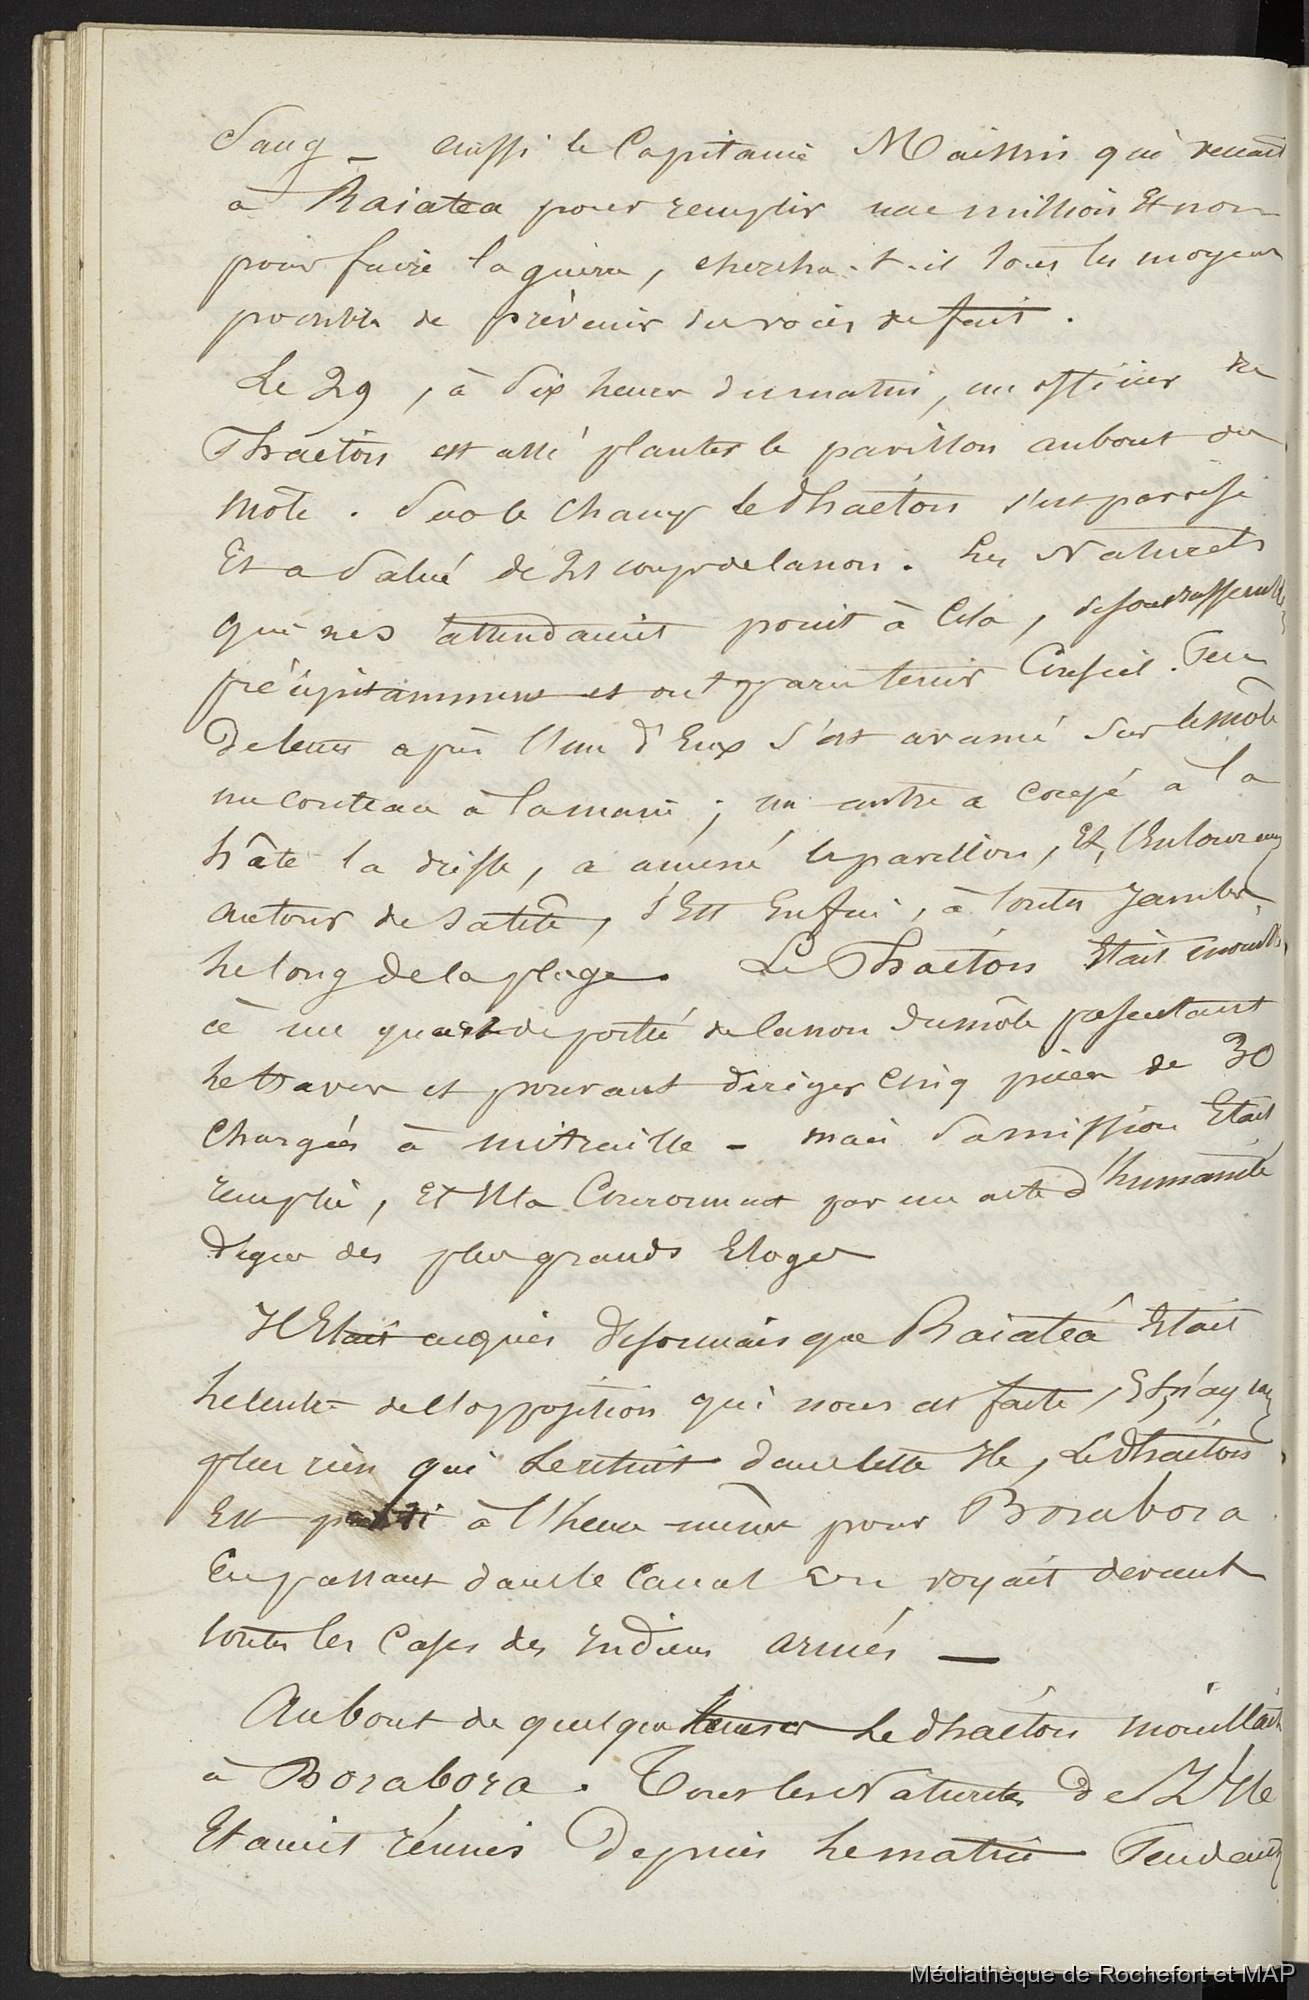 Sang _ aussi le Capitaine Maissin qui venait
à Raiatea pour remplir une mission Et non
pour faire la guerre, chercha-t-il tous les moyens
possibles de prévenir des voies de fait.
Le 29, à dix heures du matin, un officier du
Phaéton est allé planter le pavillon au bout du
môle. Sur le champ le Phaéton s'est pavoisé
Et a Salué de 21 coups de Canon. Les Naturels
qui ne s'attendaient point à Cela, se sont rassemblés
précipitamment et ont paru tenir Conseil. Peu
de temps après l'un d'Eux s'est avancé sur le môle
un couteau à la main ; un autre a coupé à la
hâte la drisse, a amené le pavillon, Et, l'Entourant
autour de sa tête, s'Est Enfui, à toutes jambes,
le long de la plage. Le Phaéton Etait mouillé
à un quart de portée de Canon du môle présentant
le travers et pouvant diriger Cinq pièces de 30
Chargées à mitraille - mais Sa mission Etait
remplie, Et Il la Couronna par un acte d'humanité
digne des plus grands Eloges
Il Etait acquis désormais que Raiatéa Etait
le centre de l'opposition qui nous est faite, Et, n'ayant
plus rien qui le retint dans cette Ile, Le Phaéton
Est parti à l'heure même pour Borabora.
En passant dans le Canal on voyait devant
toutes les Cases des Indiens armés —
Au bout de quelques heures Le Phaéton mouillait
à Borabora. Tous les Naturels de L'Ile
Etaient réunis depuis le matin Pendant